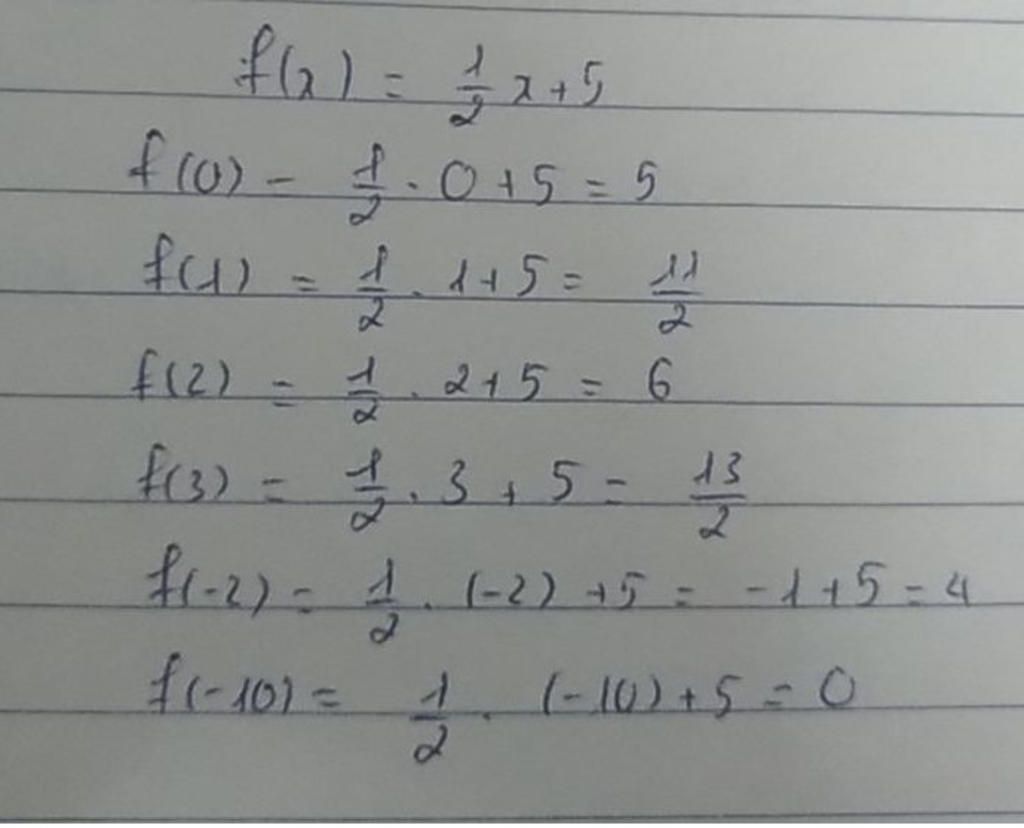 f(x) = 1/2 x + 5
f(0) - 1/2 . 0 + 5 = 5
f(1) = 1/2 . 1 + 5 = 11/2
f(2) = 1/2 . 2 + 5 = 6
f(3) = 1/2 . 3 + 5 = 13/2
f(-2) = 1/2 . (-2) + 5 = -1 + 5 = 4
f(-10) = 1/2 . (-10) + 5 = 0